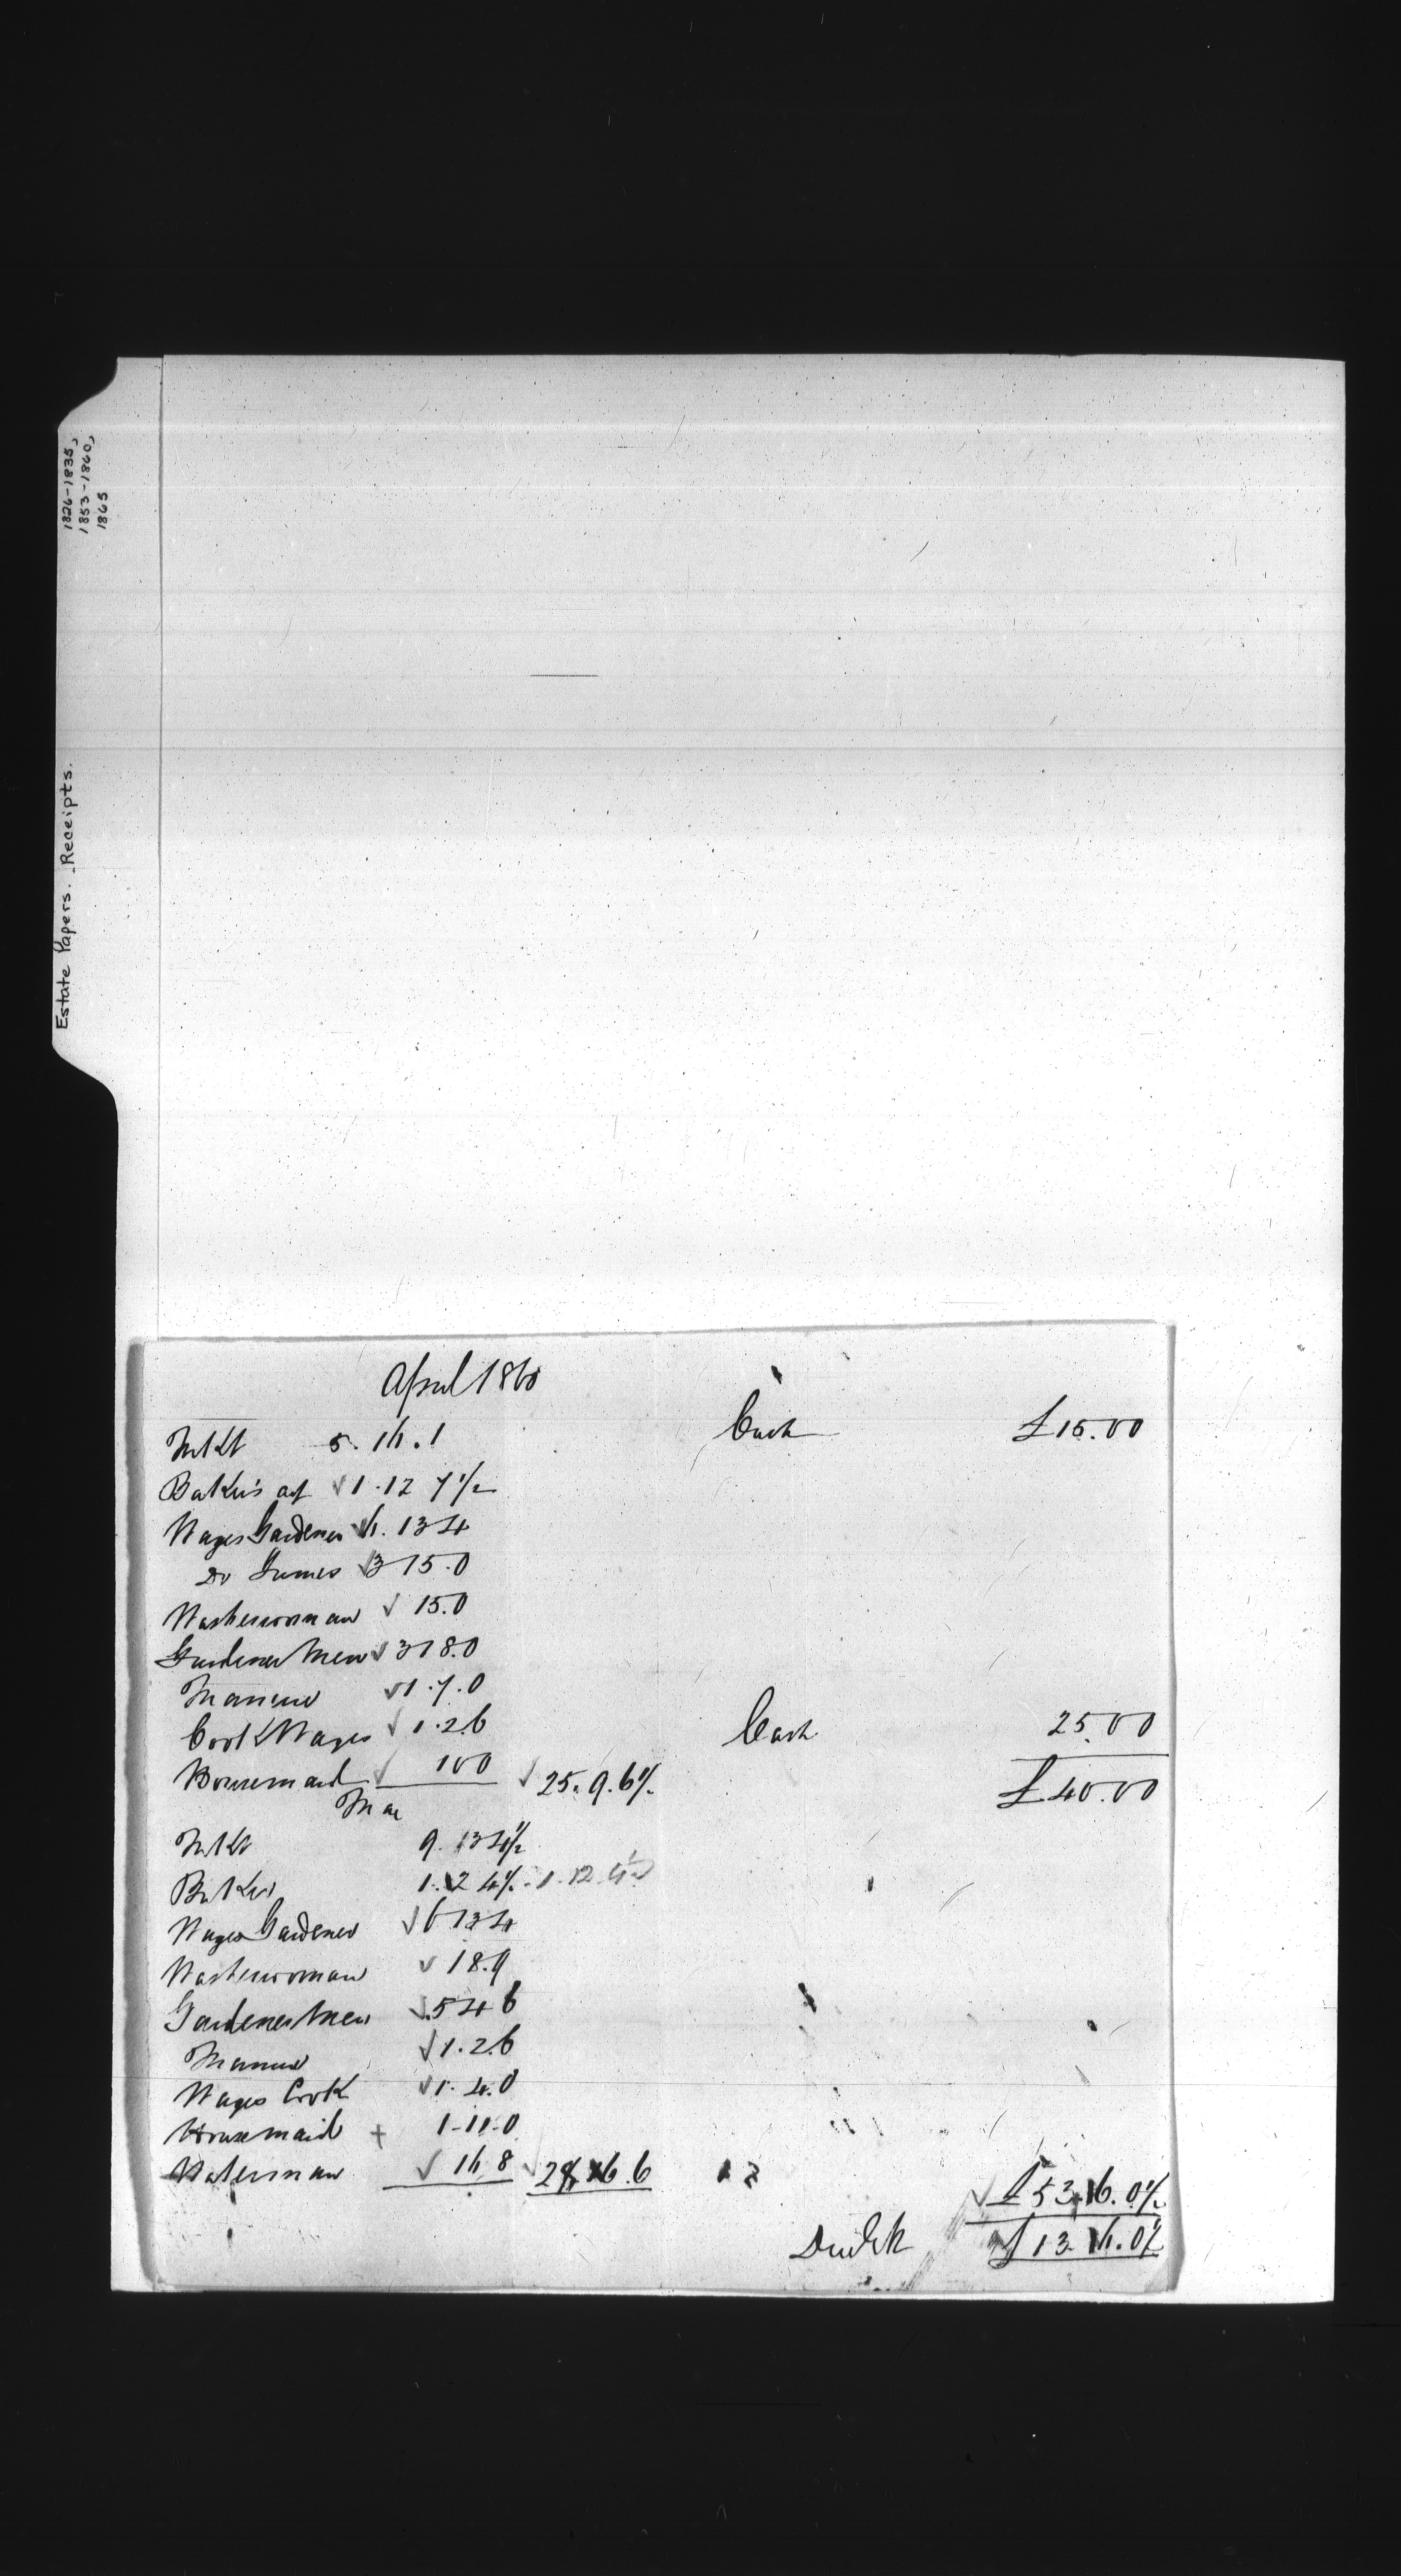 1826-1835,
1853-1860,
1865
Estate Papers. Receipts.
April 1860
Cash £15.00
Mkt 5.16.1
Baker's act √ 1.12 7½
Wages Gardener √ 6.13 4
Do James √ 3 15.0
Washerwoman √ 15.0
Gardener Men √ 3 18.0
Manure √ 1.7.0
Cook Wages √ 1.2.6
Cash 25.00
Housemaid √ 1 0 0 √ 25.9.6½
£40.00
Mkt 9.13 4½
Baker 1.12 4½ 1.12.4½
Wages Gardener √ 6 13 4
Washerwoman √ 18.9
Gardener Men √ 5 4 6
Manure √ 1.2.6
Wages Cook √ 1.4.0
Housemaid + 1-11-0
Waterman √ 16 8 √ 28.6.6
√ £53.16.0½
£13.16.0½